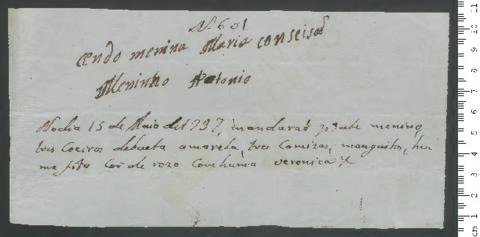 Nº 601
endo menina Maria conseisaõ
Meninho Antonio
No dia 15 de Maio de 1797, mandaraõ menino
tres Coeiros debaeta amarela, tres Camizas, manguitos, hu
ma fita Cor de roza Com huma veronica